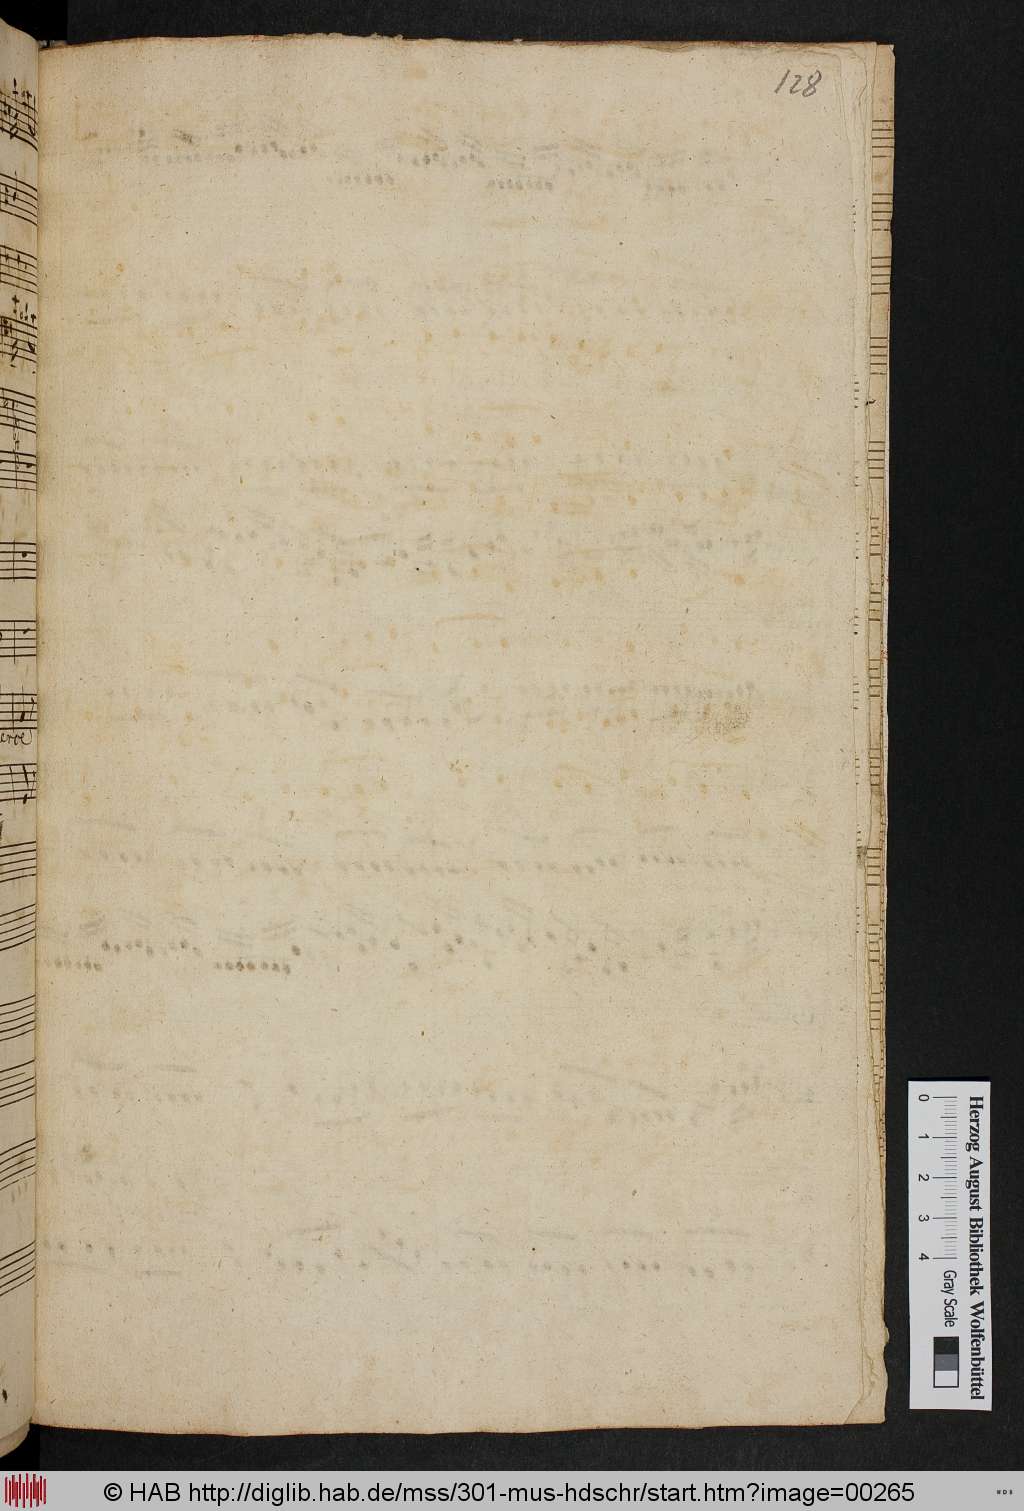 128
Herzog August Bibliothek Wolfenbüttel
0 1 2 3 4 Gray Scale
© HAB http://diglib.hab.de/mss/301-mus-hdschr/start.htm?image=00265